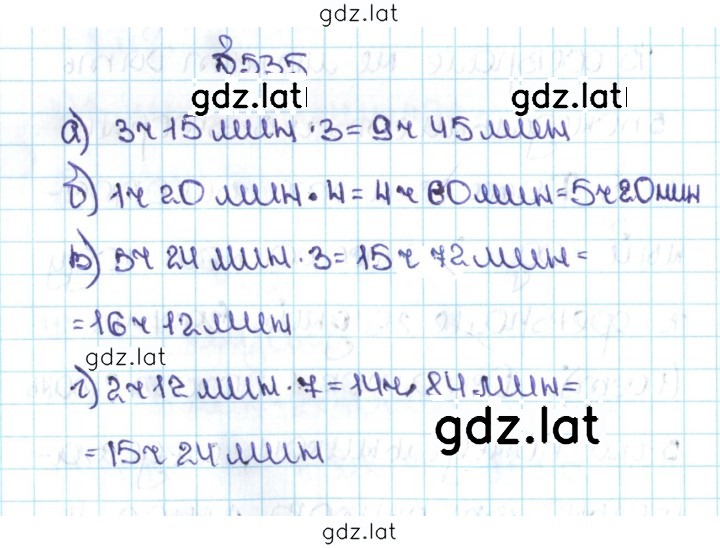 gdz.lat
№535
gdz.lat gdz.lat
а) 3ч 15 мин · 3 = 9ч 45 мин
б) 1ч 20 мин · 4 = 4ч 80 мин = 5ч 20 мин
в) 5ч 24 мин · 3 = 15ч 72 мин =
= 16ч 12 мин
gdz.lat
г) 2ч 12 мин · 7 = 14ч 84 мин =
gdz.lat
= 15ч 24 мин
gdz.lat